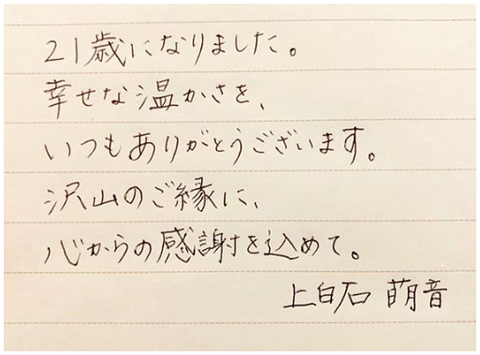 21歳になりました。
幸せな温かさを、
いつもありがとうございます。
沢山のご縁に、
心からの感謝を込めて。
上白石 萌音